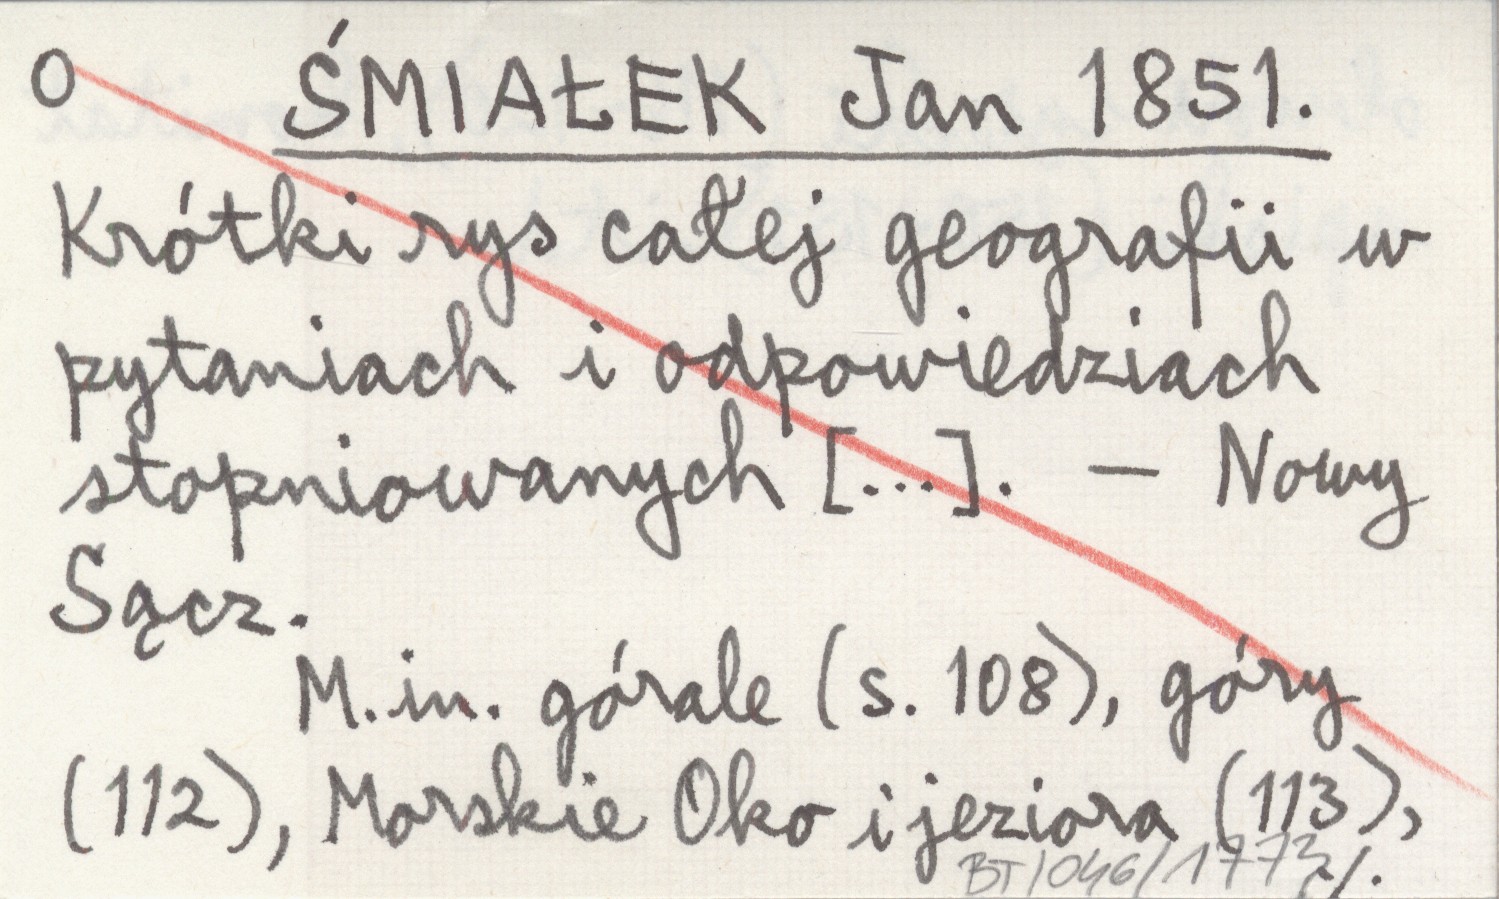 O ŚMIAŁEK Jan 1851.
Krótki rys całej geografii w
pytaniach i odpowiedziach
stopniowanych [...]. — Nowy
Sącz.
M.in. górale (s. 108), góry
(112), Morskie Oko i jeziora (113),
BT/046/1773 ./.